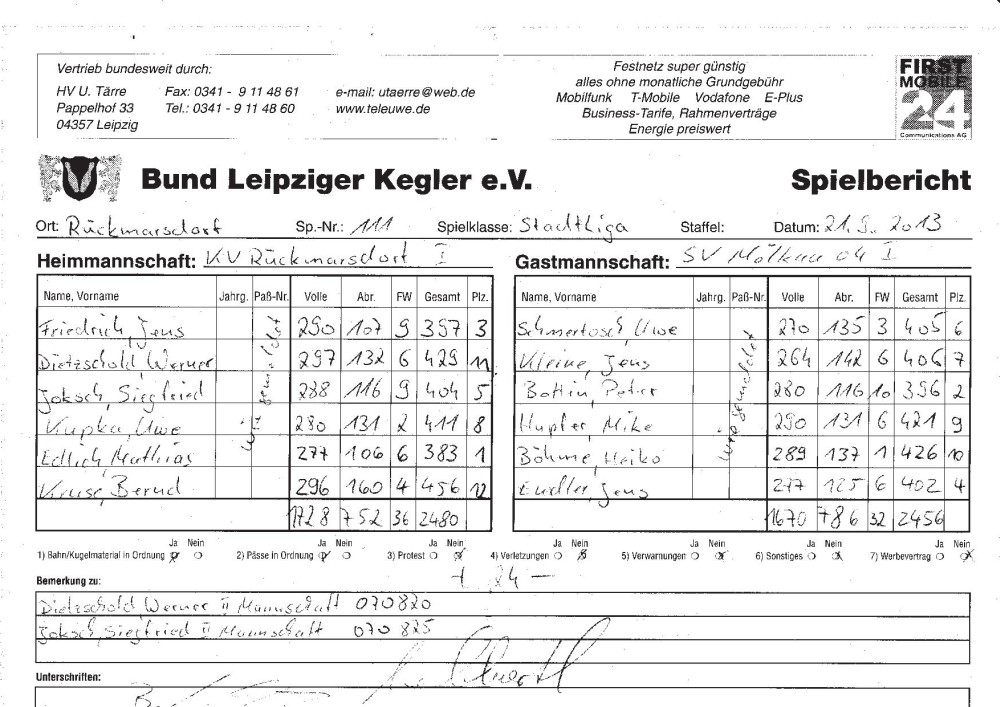 Vertrieb bundesweit durch:
HV U. Tärre Fax: 0341 - 9 11 48 61 e-mail: utaerre@web.de
Pappelhof 33 Tel.: 0341 - 9 11 48 60 www.teleuwe.de
04357 Leipzig
Festnetz super günstig
alles ohne monatliche Grundgebühr
Mobilfunk T-Mobile Vodafone E-Plus
Business-Tarife, Rahmenverträge
Energie preiswert
FIRST
MOBILE
24
Communications AG
Bund Leipziger Kegler e.V. Spielbericht
Ort: Rückmarsdorf Sp.-Nr.: 111 Spielklasse: Stadtliga Staffel: Datum: 21.9.2013
Heimmannschaft: KV Rückmarsdorf I
Name, Vorname Jahrg. Paß-Nr. Volle Abr. FW Gesamt Plz.
Friedrich, Jens 290 107 9 397 3
Dietzschold Werner 297 132 6 429 11
Joksch, Siegfried 288 116 9 404 5
Kupka, Uwe 280 131 2 411 8
Edlich, Mathias 277 106 6 383 1
Kruse, Bernd 296 160 4 456 12
1728 752 36 2480
wie gemeldet
Gastmannschaft: SV Mölkau 04 I
Name, Vorname Jahrg. Paß-Nr. Volle Abr. FW Gesamt Plz.
Schmertosch, Uwe 270 135 3 405 6
Kleine, Jens 264 142 6 406 7
Bottin, Peter 280 116 10 396 2
Hupfer, Mike 290 131 6 421 9
Böhme, Heiko 289 137 1 426 10
Endler, Jens 277 125 6 402 4
1670 786 32 2456
wie gemeldet
Ja Nein Ja Nein Ja Nein Ja Nein Ja Nein Ja Nein Ja Nein
1) Bahn/Kugelmaterial in Ordnung 2) Pässe in Ordnung 3) Protest 4) Verletzungen 5) Verwarnungen 6) Sonstiges 7) Werbevertrag
+ 24 –
Bemerkung zu:
Dietzschold Werner II Mannschaft 070820
Joksch, Siegfried II Mannschaft 070 825
Unterschriften: